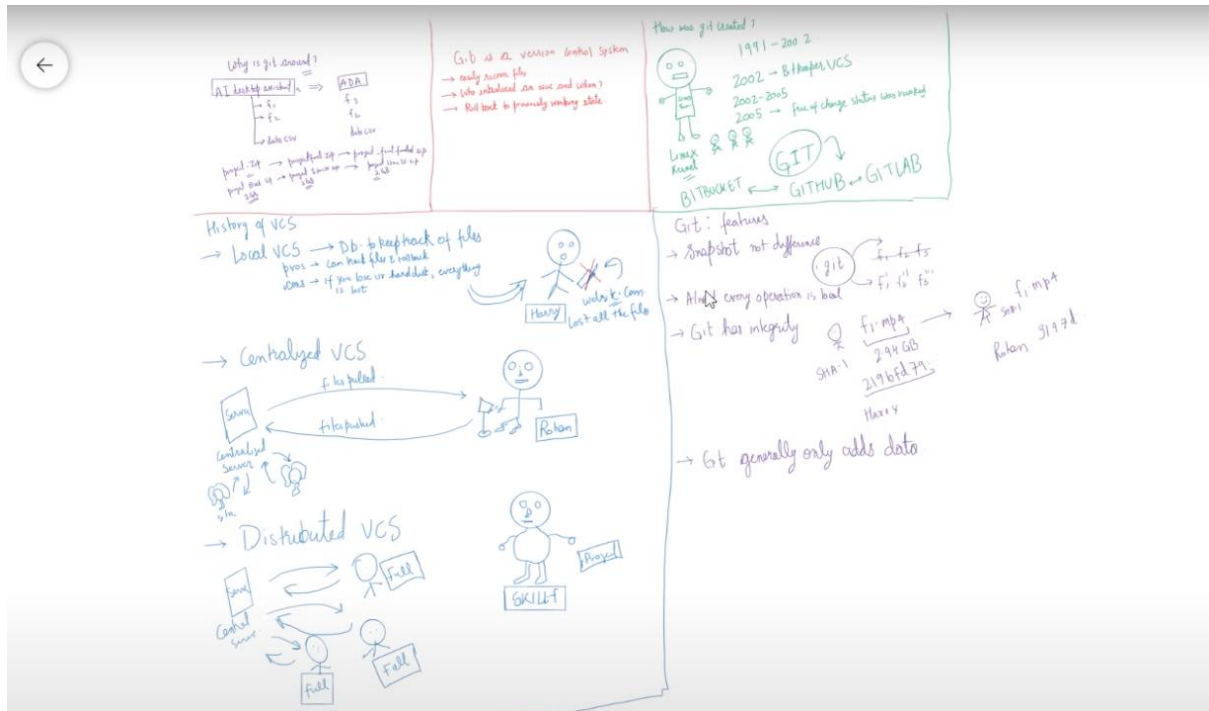 Why is git around?
AI desktop assistant ⇒ ADA
→ f1 f2
→ f2 f2
→ data csv data csv
Git is a version control system
→ easily recover files
→ Who introduced an issue and when?
→ Roll back to previously working state
How was git created?
1991-2002
2002 → Bitkeeper VCS
2002-2005
2005 → free of charge status was revoked
Linux
Kernel
GIT
BITBUCKET GITHUB GITLAB
History of VCS
→ Local VCS → Db to keep track of files
pros → can track files & rollback
cons → if you lose ur hard disk, everything
is lost
Harry
Lost all the files
→ Centralized VCS
files pulled
Server
files pushed
Rohan
Centralized
Server
→ Distributed VCS
Server
Full
Central
Server
Full
Full
Project
SKILLF
Git: features
→ Snapshot not difference
git
f1 f2 f3
→ every operation is local
→ Git has integrity
f1.mp4
SHA-1
2.94 GB
219bfd79
Harry
f1.mp4
SHA-1
Rohan 3197d
→ Git generally only adds data